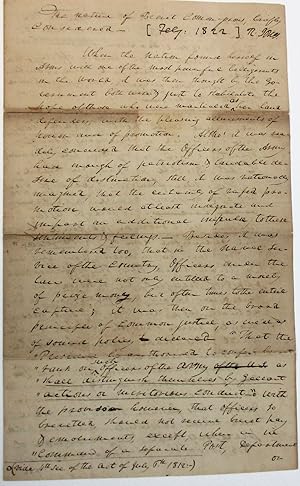 The nature of Brevet Commissions, briefly
Considered — [Feby: 1822] R. Jones
When the Nation found herself in
Arms with one of the most powerful belligerents
in the World it was then thought by the Go-
vernment both wise & just to stimulate the
hope of those who were marshalled as her land
defenders, with the pleasing allurements of
honor and of promotion. Altho' it was
concieved that the Officers of the Army
have enough of patriotism & laudable de-
sire of distinction, still, it was
imagined that the certainty of rapid pro-
motion would at least invigorate and
impart an additional impulse to those
sentiments & feelings. Besides, it was
remembered too, that in the Naval Ser-
vice of the Country, Officers under the
law were not only entitled to a moiety
of prize money but oftentimes to the entire
capture; it was then on the broad
principle of Common justice, as well as
of sound policy, declared "That the
"President is authorized to confer brevet
"rank on such Officers of the Army as
"shall distinguish themselves by gallant
"actions or meritorious conduct" with
the proviso however, that officers so
brevetted should not receive brevet pay
& emoluments, except when in the
"Command of a separate Post, department
or
(vide 4th Sec of the Act of July 6th 1812.)